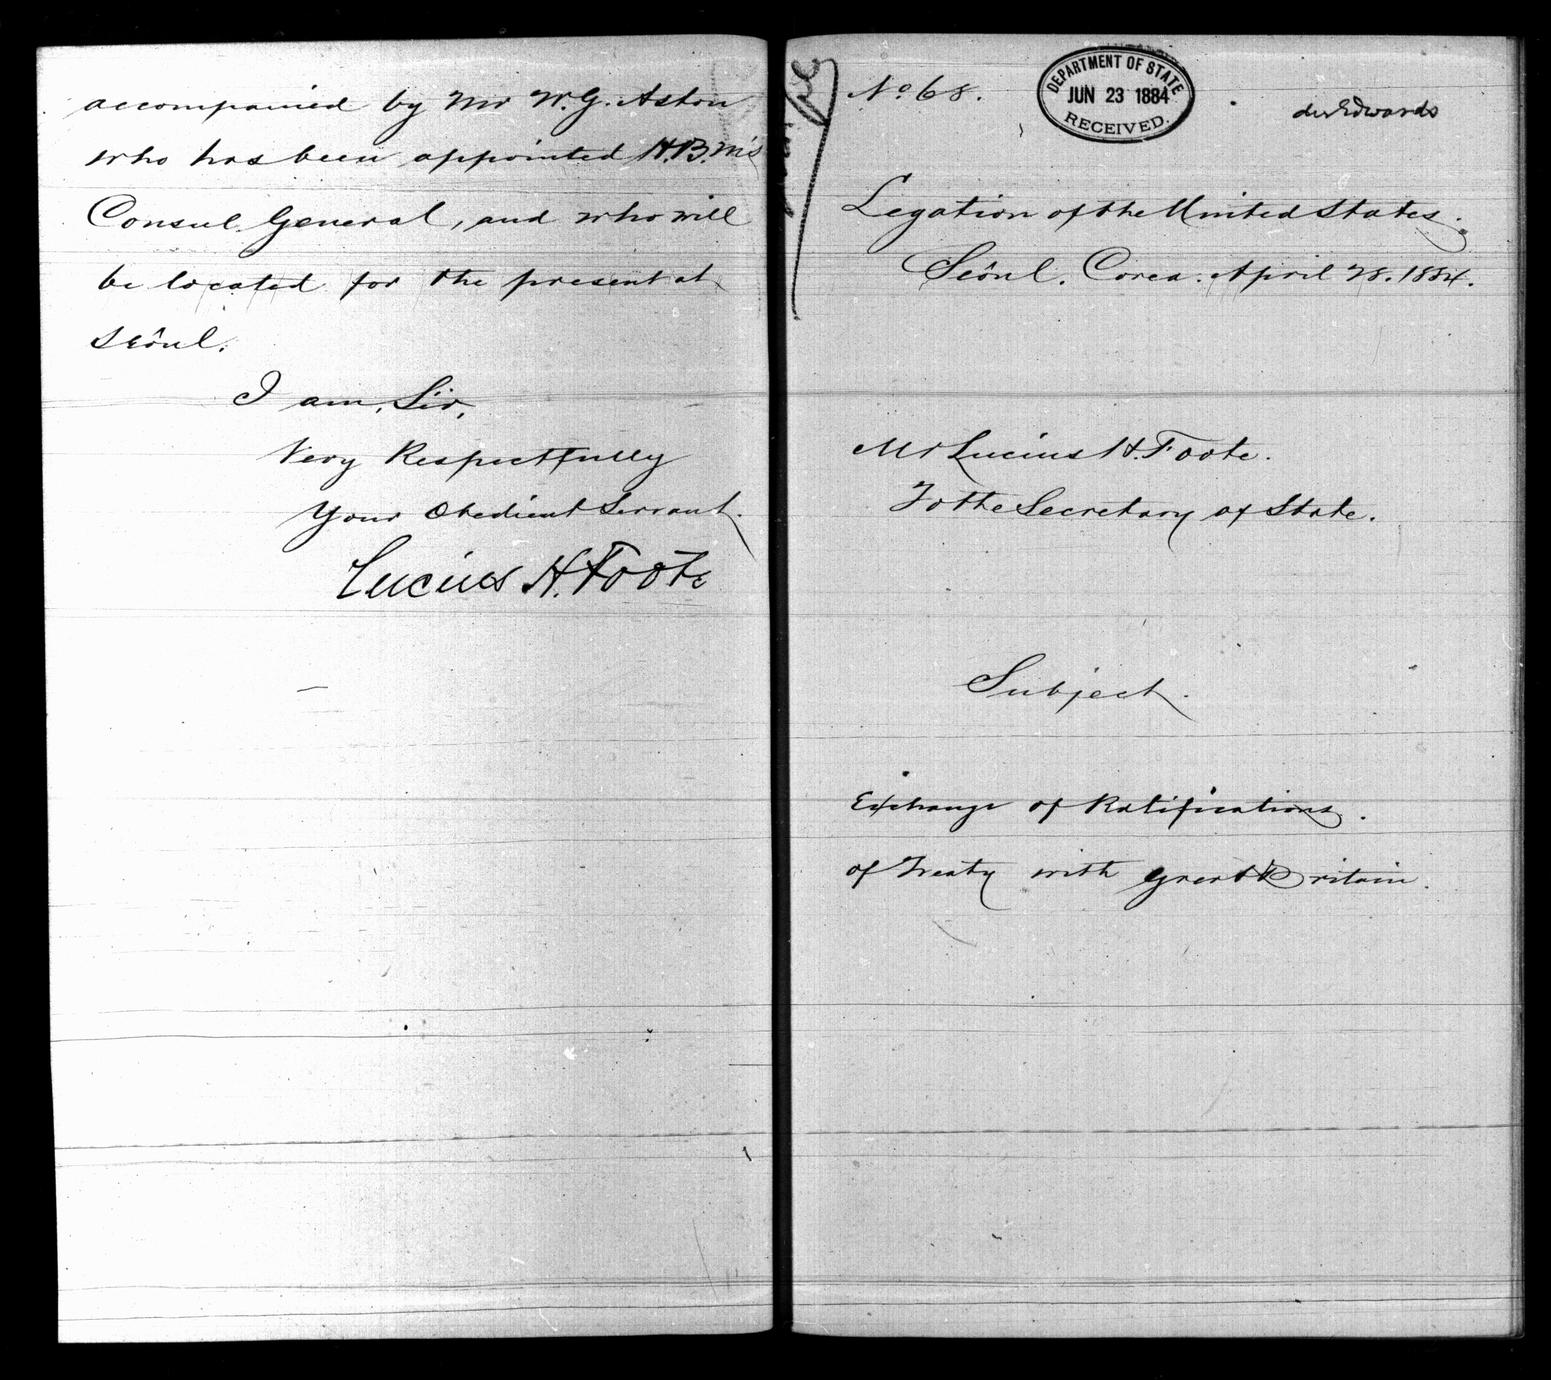 accompanied by Mr W. G. Aston
who has been appointed H.B.M's
Consul General, and who will
be located for the present at
Seôul.
I am, Sir,
Very Respectfully
Your Obedient Servant.
Lucius H. Foote
No 68.
DEPARTMENT OF STATE
JUN 23 1884
RECEIVED.
Edwards
Legation of the United States.
Seôul. Corea. April 28. 1884.
Mr Lucius H. Foote.
To the Secretary of State.
Subject.
Exchange of Ratifications.
of Treaty with Great Britain.